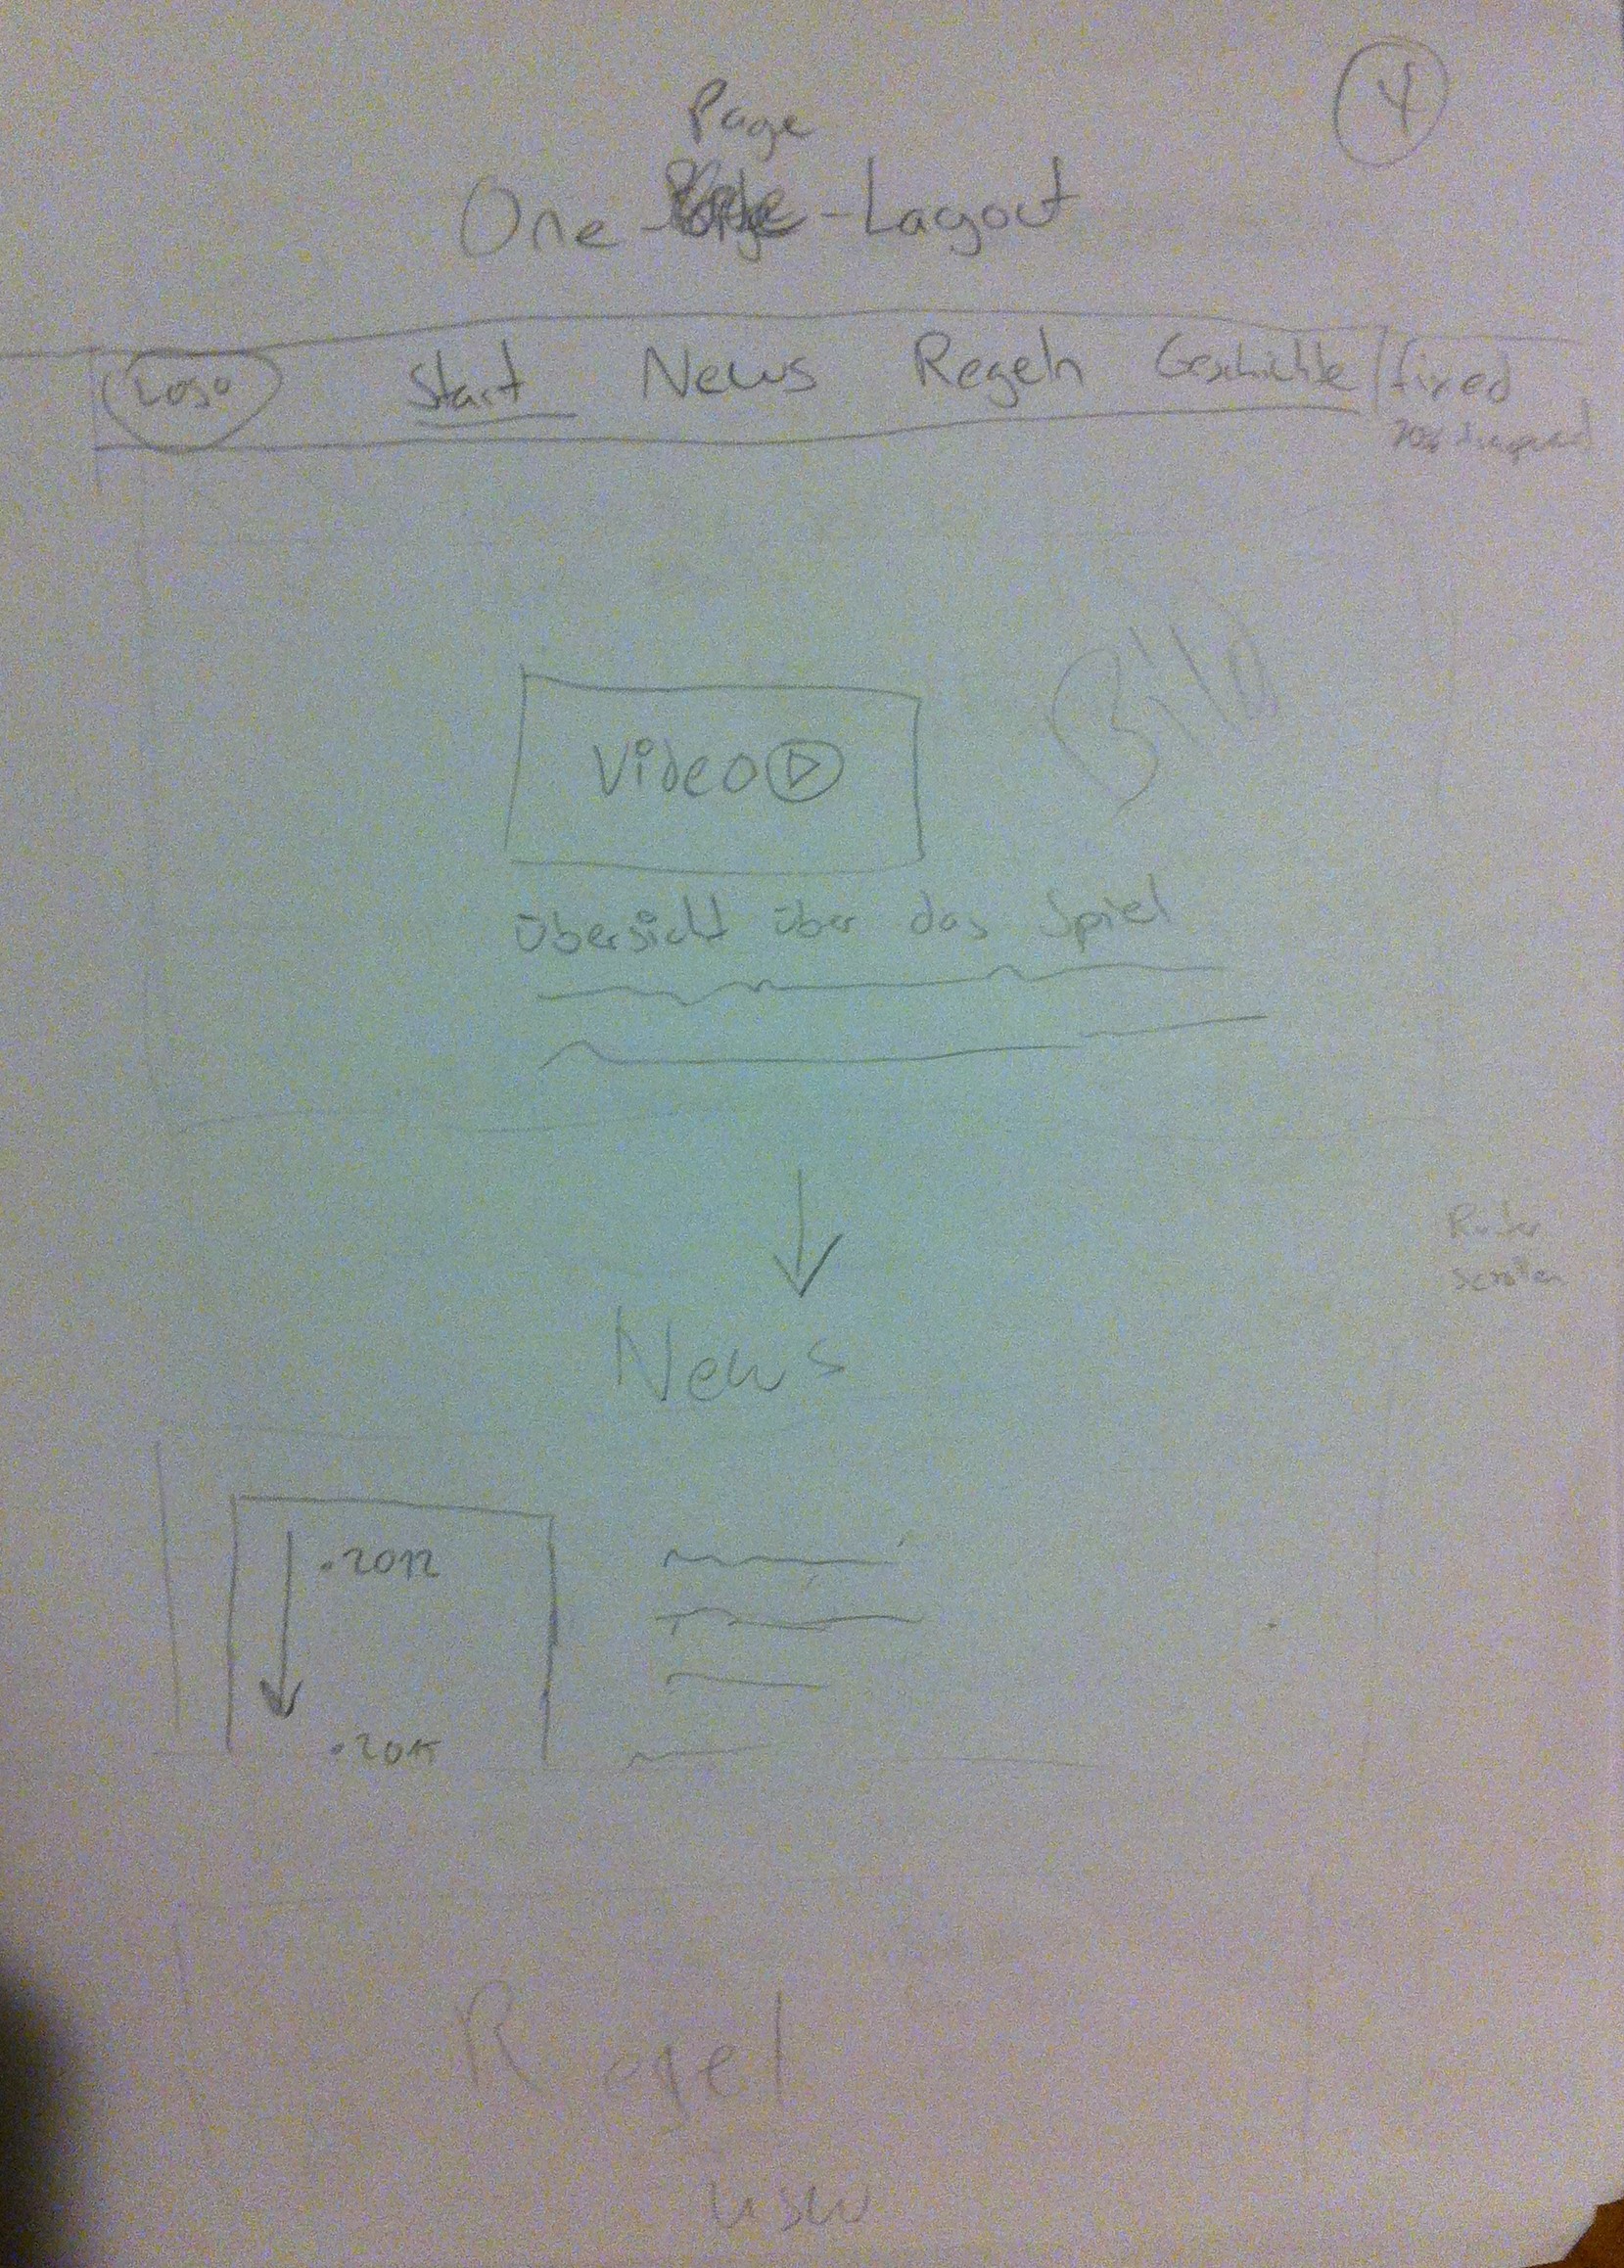 4
Page
One - -Layout
Logo Start News Regeln Geschichte fixed
Bild
Video
Übersicht über das Spiel
scrollen
News
.2012
.2015
Regel
usw